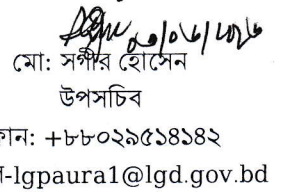 ০৩/০৬/২০২৬
মো: সগীর হোসেন
উপসচিব
ফোন: +৮৮০২৯৫১৪১৪২
ল-lgpaura1@lgd.gov.bd